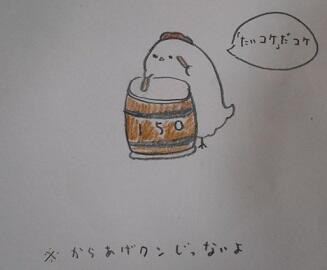 「たいコケ」だコケ
150
※からあげクンじゃないよ